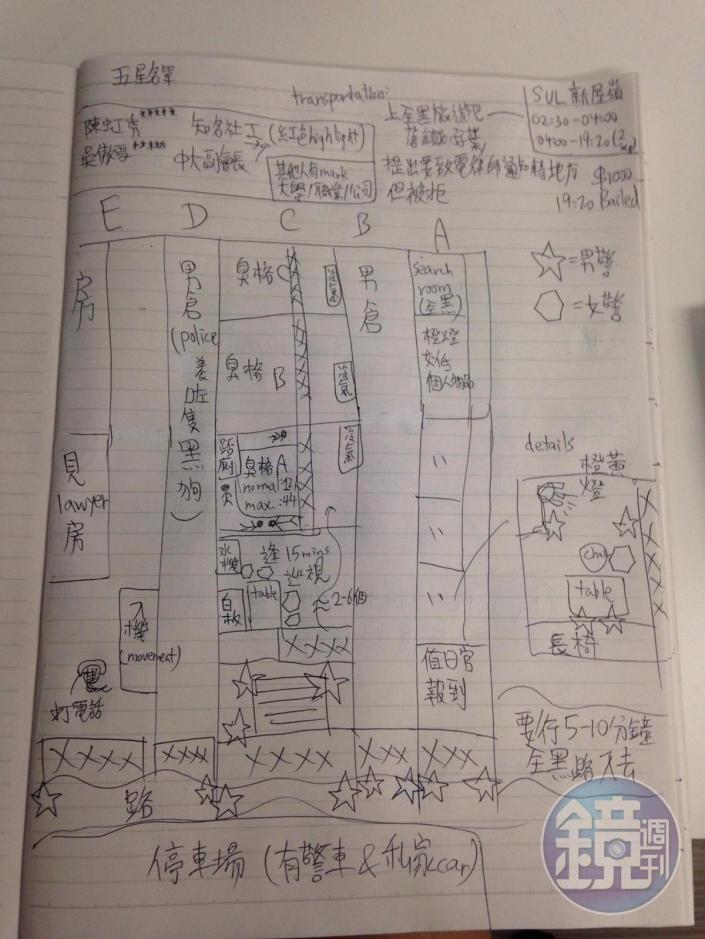 五星名單
transportation:
上全黑旅遊巴
SUL 新屋嶺
02:30-04:00
04:00-19:20
$1000
19:20 Bailed
陳虹秀*****
知名社工 (紅色highlight)
吳傲雪*****
中大副會長
其他人有mark
大學/職業/公司
提出要致電律師通知
地方
但被拒
E
D
C
B
A
房
男倉
(police
養咗隻黑狗)
臭格C
冷氣
男倉
search
room
(全黑)
☆=男警
⬡=女警
臭格 B
冷氣
橙燈
交低
個人物品
見
lawyer
房
臭格A
normal:12
max.:44
冷氣
"
"
"
details
橙黃
燈
chair
table
長椅
水機
逢15mins
巡視
白板
table
2-6個
值日官
報到
入機
(movement)
打電話
路
要行5-10分鐘
全黑路入去
停車場 (有警車 & 私家car)
鏡週刊